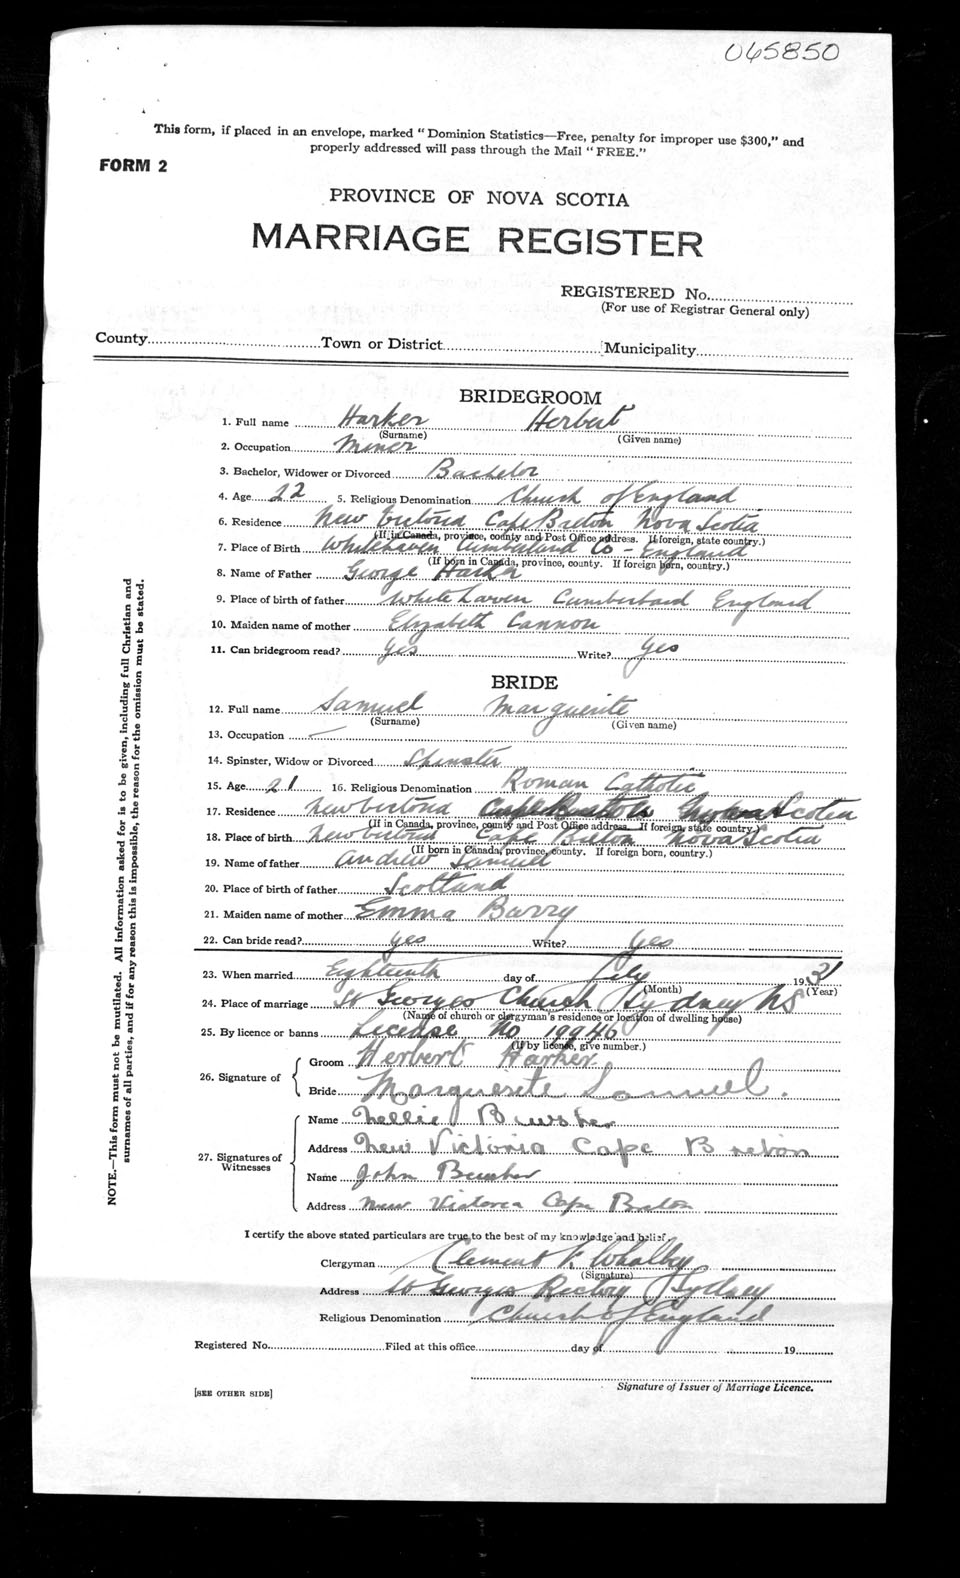 065850
This form, if placed in an envelope, marked "Dominion Statistics—Free, penalty for improper use $300," and
properly addressed will pass through the Mail "FREE."
FORM 2
PROVINCE OF NOVA SCOTIA
MARRIAGE REGISTER
REGISTERED No.
(For use of Registrar General only)
County Town or District Municipality
BRIDEGROOM
1. Full name Harker Herbert
(Surname) (Given name)
2. Occupation Miner
3. Bachelor, Widower or Divorced Bachelor
4. Age 22 5. Religious Denomination Church of England
6. Residence New Victoria Cape Breton Nova Scotia
(If in Canada, province, county and Post Office address. If foreign, state country.)
7. Place of Birth Whitehaven Cumberland Co - England
(If born in Canada, province, county. If foreign born, country.)
8. Name of Father George Harker
9. Place of birth of father Whitehaven Cumberland England
10. Maiden name of mother Elizabeth Cannon
11. Can bridegroom read? Yes Write? Yes
BRIDE
12. Full name Samuel Marguerite
(Surname) (Given name)
13. Occupation —
14. Spinster, Widow or Divorced Spinster
15. Age 21 16. Religious Denomination Roman Catholic
17. Residence New Victoria Cape Breton Nova Scotia
(If in Canada, province, county and Post Office address. If foreign, state country.)
18. Place of birth New Victoria Cape Breton Nova Scotia
(If born in Canada, province, county. If foreign born, country.)
19. Name of father Andrew Samuel
20. Place of birth of father Scotland
21. Maiden name of mother Emma Barry
22. Can bride read? Yes Write? Yes
23. When married Eighteenth day of July 1931
(Month) (Year)
24. Place of marriage St Georges Church Sydney NS
(Name of church or clergyman's residence or location of dwelling house)
25. By licence or banns License No 19946
(If by license, give number.)
26. Signature of
Groom Herbert Harker
Bride Marguerite Samuel.
27. Signatures of Witnesses
Name Nellie Brusher
Address New Victoria Cape Breton
Name John
Address New Victoria Cape Breton
I certify the above stated particulars are true to the best of my knowledge and belief.
Clergyman Clement Whalley
(Signature)
Address St Georges Rectory Sydney
Religious Denomination Church of England
Registered No. Filed at this office day of 19
Signature of Issuer of Marriage Licence.
[SEE OTHER SIDE]
NOTE.—This form must not be mutilated. All information asked for is to be given, including full Christian and
surnames of all parties, and if for any reason this is impossible, the reason for the omission must be stated.